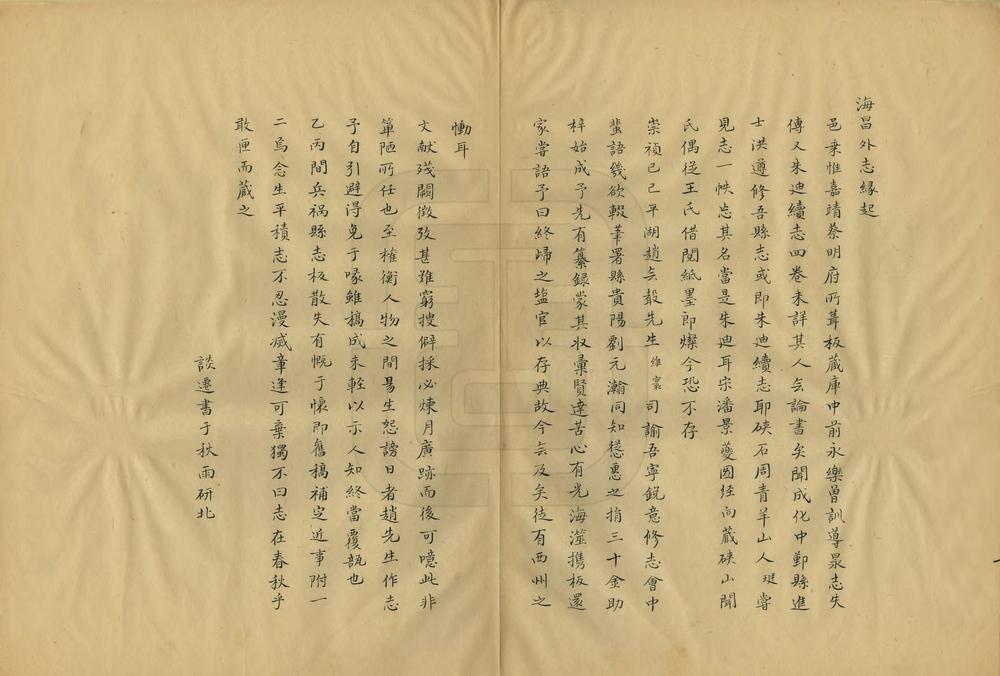 海昌外志緣起
邑乘惟嘉靖蔡明府所葺板藏庫中前永樂曾訓導泉志失
傳又朱迪續志四卷未詳其人無論書矣聞成化中鄞縣進
士洪遵修吾縣志或即朱迪續志耶硤石周青羊山人珽嘗
見志一帙忘其名當是朱迪耳宋潘景夔圖經向藏硤山聞
氏偶從王氏借閱紙墨即燦今恐不存
崇禎己巳平湖趙無聲先生維寰司諭吾寧銳意修志會中
蜚語幾欲輟筆署縣貴陽劉元瀚同知慫恿之捐三十金助
梓始成予先有纂録蒙其収彙賢達苦心有光海澨攜板還
家嘗語予曰終歸之塩官以存典故今無及矣徒有西州之
慟耳
文献殘闕徴攷甚難窮搜僻採必煉月廣跡而後可噫此非
箪陋所任也至權衡人物之間易生怨謗日者趙先生作志
予自引避得免于喙雖稿成未輕以示人知終當覆瓿也
乙丙間兵禍縣志板散失有慨于懷即舊稿補定近事附一
二焉念生平積志不忍漫滅葦逢可棄獨不曰志在春秋乎
敢匣而藏之
談遷書于秋雨研北